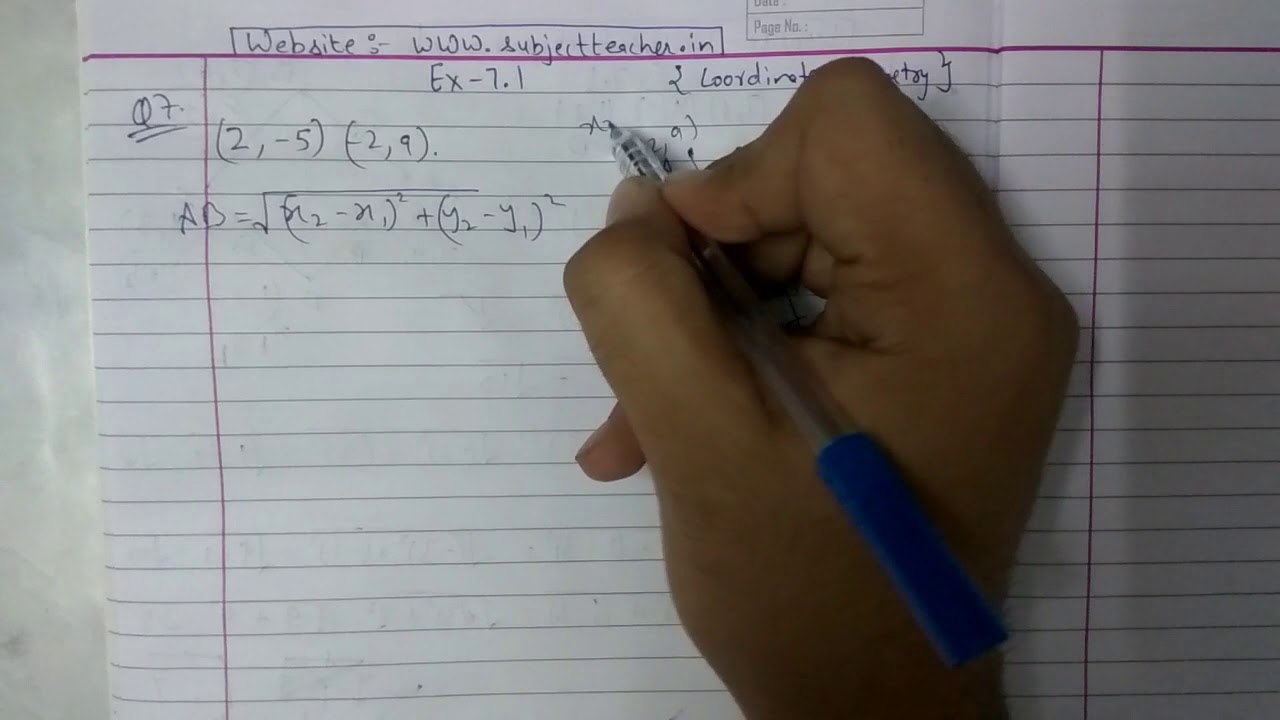 Date :
Page No. :
Website :- www.subjectteacher.in
Ex-7.1
Q7.
(2, -5) (-2, 9).
AB = √(x₂ - x₁)² + (y₂ - y₁)²